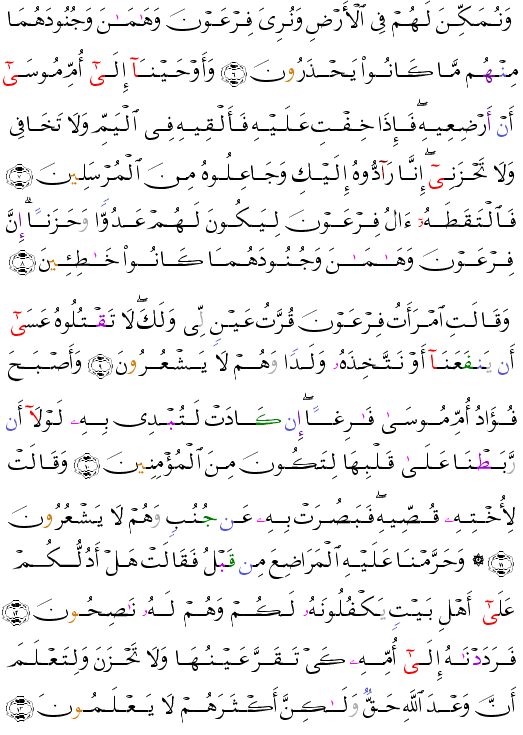 وَنُمَكِّنَ لَهُمْ فِي الْأَرْضِ وَنُرِيَ فِرْعَوْنَ وَهَٰمَٰنَ وَجُنُودَهُمَا
مِنْهُم مَّا كَانُوا۟ يَحْذَرُونَ ٦ وَأَوْحَيْنَآ إِلَىٰٓ أُمِّ مُوسَىٰٓ
أَنْ أَرْضِعِيهِ ۖ فَإِذَا خِفْتِ عَلَيْهِ فَأَلْقِيهِ فِى الْيَمِّ وَلَا تَخَافِى
وَلَا تَحْزَنِىٓ ۖ إِنَّا رَآدُّوهُ إِلَيْكِ وَجَاعِلُوهُ مِنَ الْمُرْسَلِينَ ٧
فَالْتَقَطَهُۥٓ ءَالُ فِرْعَوْنَ لِيَكُونَ لَهُمْ عَدُوًّا وَحَزَنًا ۗ إِنَّ
فِرْعَوْنَ وَهَٰمَٰنَ وَجُنُودَهُمَا كَانُوا۟ خَٰطِـِٔينَ ٨
وَقَالَتِ امْرَأَتُ فِرْعَوْنَ قُرَّتُ عَيْنٍ لِّى وَلَكَ ۖ لَا تَقْتُلُوهُ عَسَىٰٓ
أَن يَنفَعَنَآ أَوْ نَتَّخِذَهُۥ وَلَدًا وَهُمْ لَا يَشْعُرُونَ ٩ وَأَصْبَحَ
فُؤَادُ أُمِّ مُوسَىٰ فَٰرِغًا ۖ إِن كَادَتْ لَتُبْدِى بِهِۦ لَوْلَآ أَن
رَّبَطْنَا عَلَىٰ قَلْبِهَا لِتَكُونَ مِنَ الْمُؤْمِنِينَ ١٠ وَقَالَتْ
لِأُخْتِهِۦ قُصِّيهِ ۖ فَبَصُرَتْ بِهِۦ عَن جُنُبٍ وَهُمْ لَا يَشْعُرُونَ
١١ ۞ وَحَرَّمْنَا عَلَيْهِ الْمَرَاضِعَ مِن قَبْلُ فَقَالَتْ هَلْ أَدُلُّكُمْ
عَلَىٰٓ أَهْلِ بَيْتٍ يَكْفُلُونَهُۥ لَكُمْ وَهُمْ لَهُۥ نَٰصِحُونَ ١٢
فَرَدَدْنَٰهُ إِلَىٰٓ أُمِّهِۦ كَىْ تَقَرَّ عَيْنُهَا وَلَا تَحْزَنَ وَلِتَعْلَمَ
أَنَّ وَعْدَ اللَّهِ حَقٌّ وَلَٰكِنَّ أَكْثَرَهُمْ لَا يَعْلَمُونَ ١٣